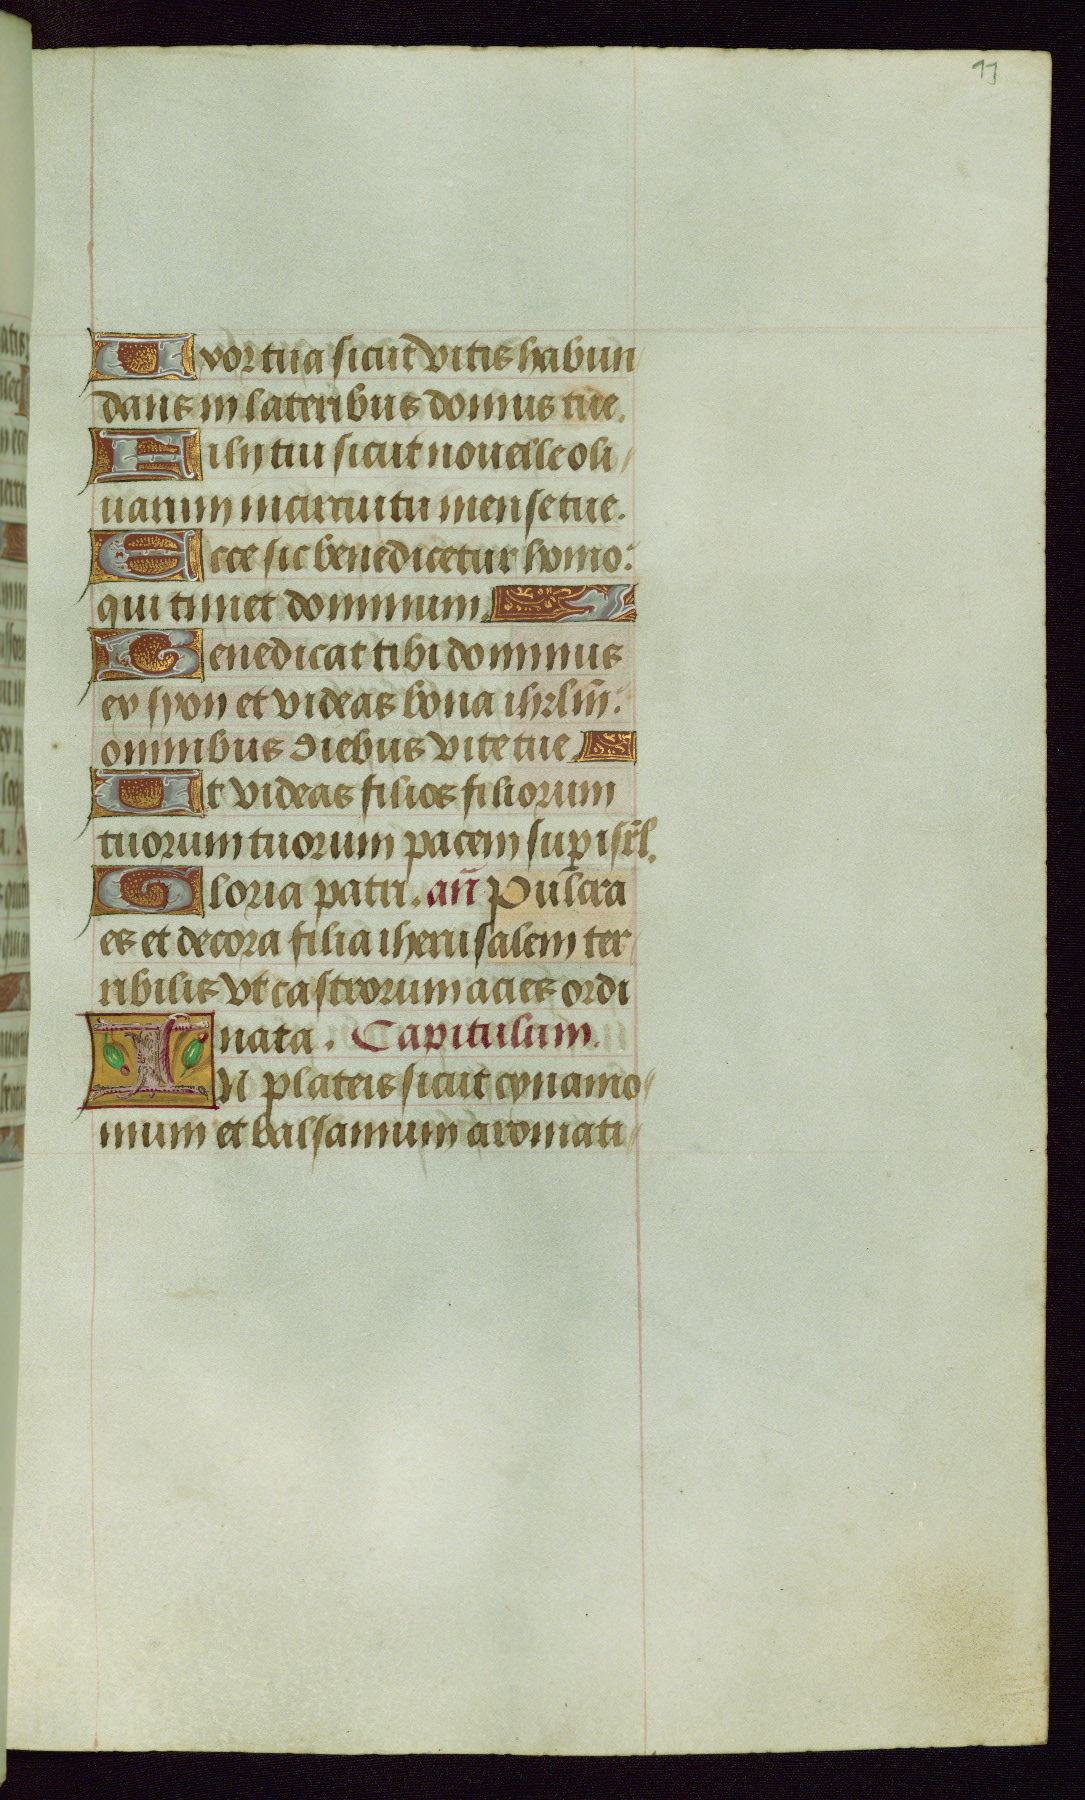 93
Uxor tua sicut vitis habun
dans in lateribus domus tue.
Filij tui sicut nouelle oli
uarum in circuitu mense tue.
Ecce sic benedicetur homo:
qui timet dominum.
Benedicat tibi dominus
ex syon et videas bona ihrlm̄:
omnibus diebus vite tue
Et videas filios filiorum
tuorum tuorum pacem sup isrl̄.
Gloria patri. an̄ Pulcra
es et decora filia iherusalem ter
ribilis vt castrorum acies ordi
nata. Capitulum.
IN plateis sicut cynamo
mum et balsamum aromati